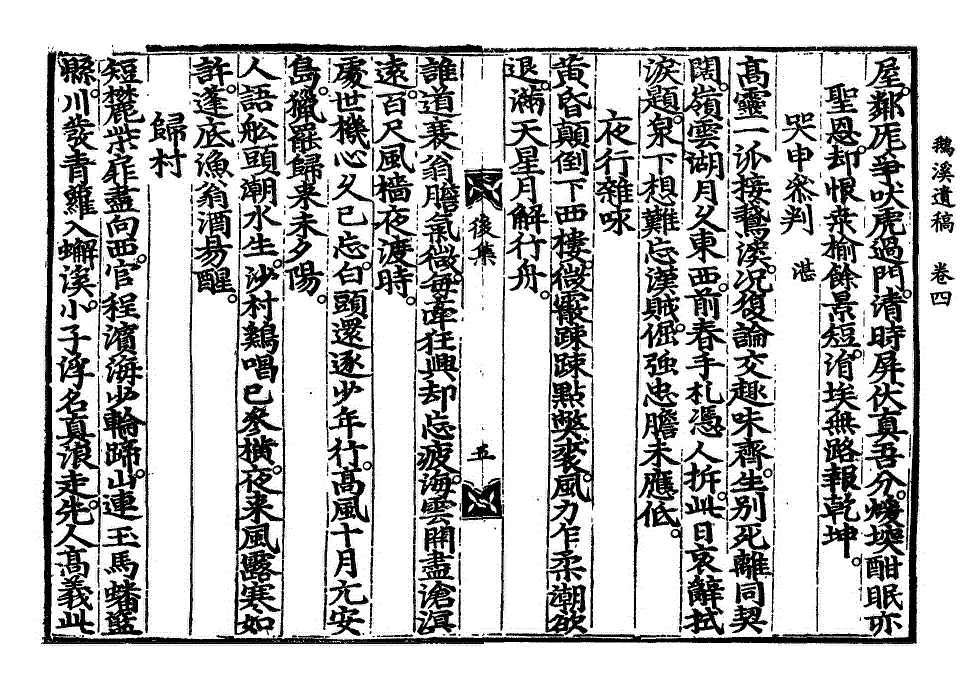 鵝溪遺稿 卷四
屋。鄰厖爭吠虎過門。清時屏伏真吾分。煖堗酣眠亦
聖恩。却恨桑榆餘景短。涓埃無路報乾坤。
哭申叅判 湛
高靈一派接鵝溪。况復論交趣味齊。生別死離同契
闊。嶺雲湖月久東西。前春手札憑人拆。此日哀辭拭
淚題。泉下想難忘漢賊。倔強忠膽未應低。
夜行雜咏
黃昏顛倒下西樓。微霰疎疎點弊裘。風力乍柔潮欲
退。滿天星月解行舟。
後集 五
誰道衰翁膽氣微。每牽狂興却忘疲。海雲開盡滄溟
遠。百尺風檣夜渡時。
處世機心久已忘。白頭還逐少年行。高風十月元安
島。獵罷歸來未夕陽。
人語舩頭潮水生。沙村鷄唱已參橫。夜來風露寒如
許。蓬底漁翁酒易醒。
歸村
短麓柴扉盡向西。官程濱海少輪蹄。山連玉馬蟠藍
縣。川發青蘿入蠏溪。小子浮名真浪走。先人高義此